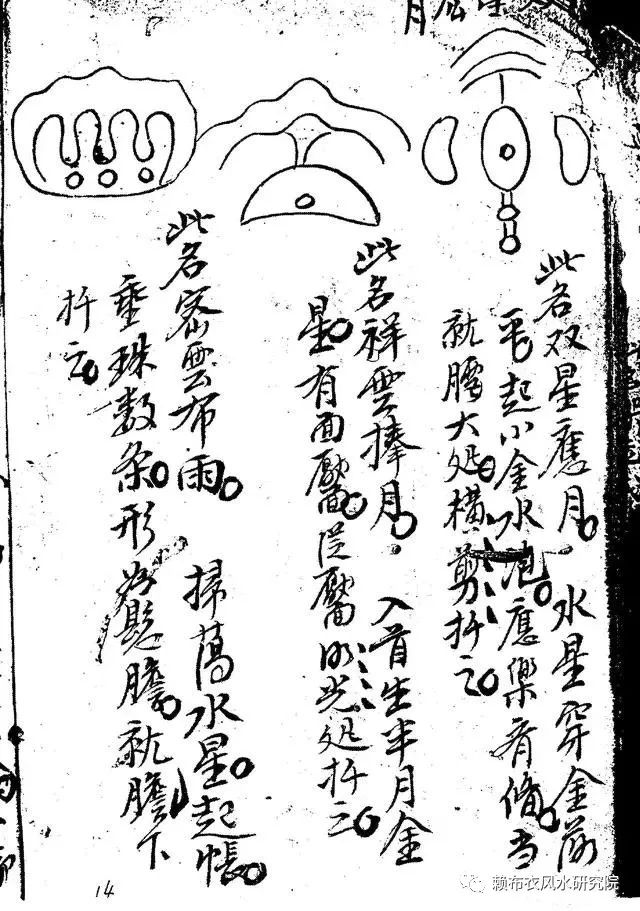 此名双星應月。水星穿金落
平起小金水泡應樂有俻当
就腰大处橫剪扦之
此名祥雲捧月。入首生半月金
星。有面靨。從靨明光处扦之
此名密雲布雨。掃蕩水星。起帳
垂珠数条。形如懸膽。就膽下
扦之。
14
赖布衣风水研究院